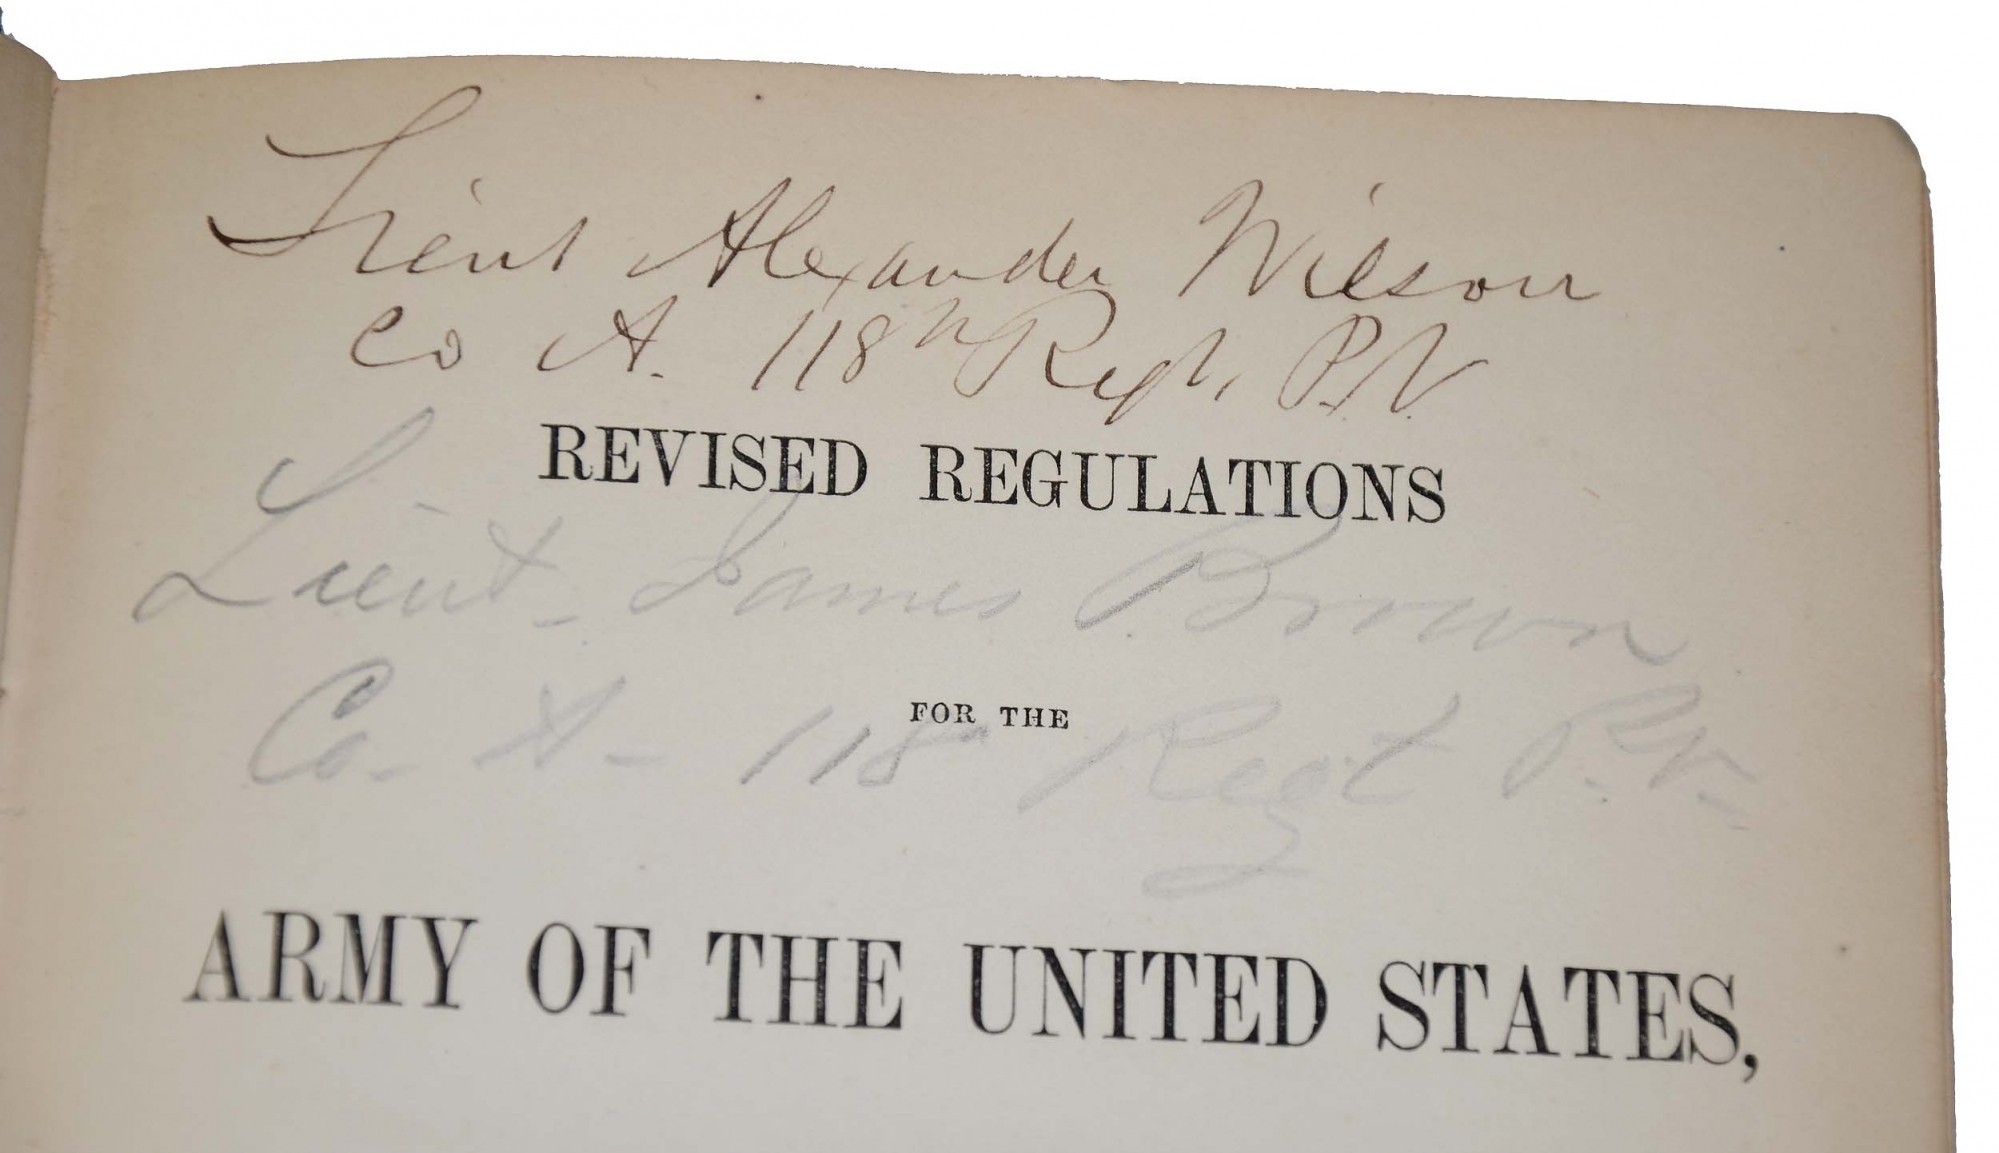 Lieut Alexander Wilson
Co A. 118th Regt. P.V.
REVISED REGULATIONS
Lieut. James Brown
FOR THE
Co. A. 118th Regt P.V.
ARMY OF THE UNITED STATES,